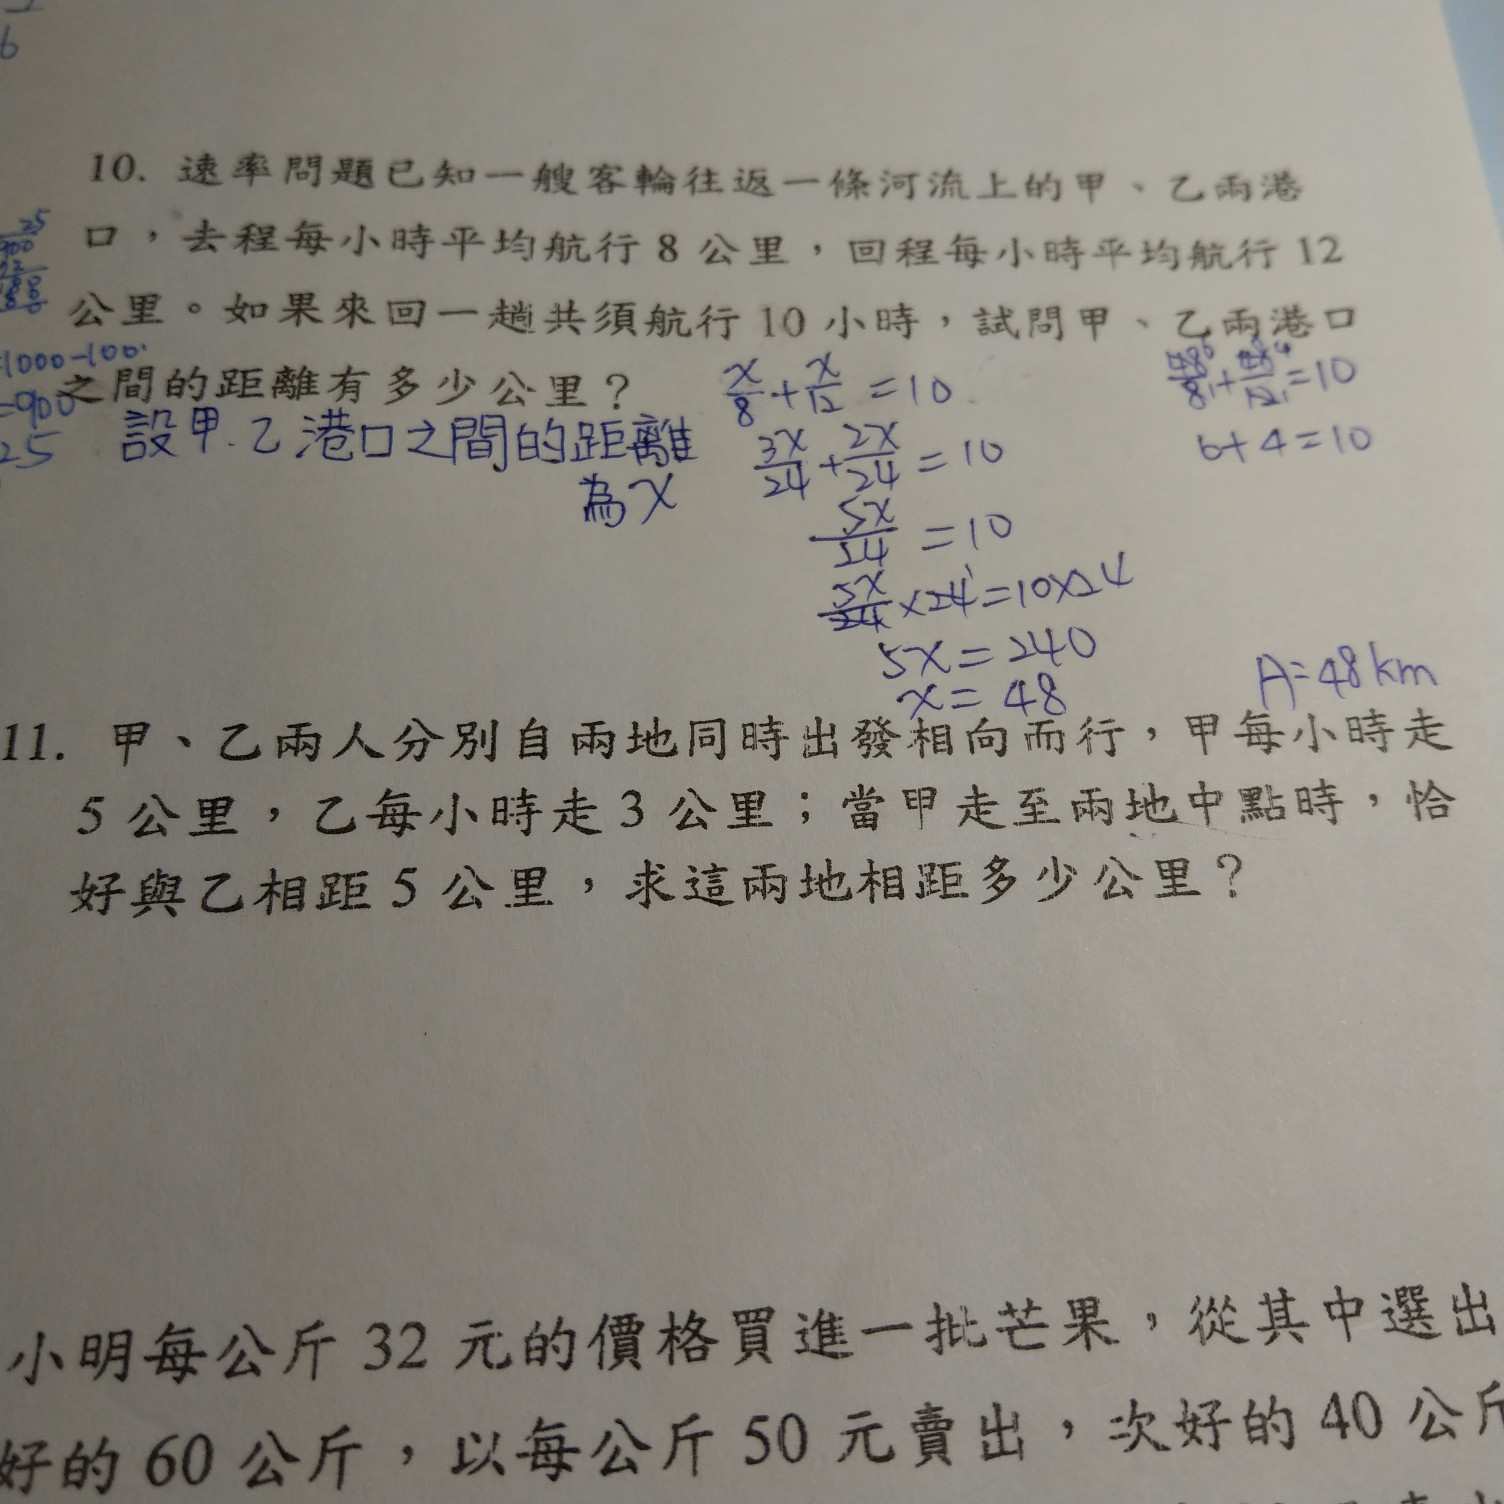 6
10. 速率問題已知一艘客輪往返一條河流上的甲、乙兩港
口，去程每小時平均航行 8 公里，回程每小時平均航行 12
公里。如果來回一趟共須航行 10 小時，試問甲、乙兩港口
之間的距離有多少公里？
25
900
1000-100
=900
25
設甲.乙港口之間的距離
為x
x/8 + x/12 = 10
3x/24 + 2x/24 = 10
5x/24 = 10
5x/24 ×24 = 10×24
5x = 240
x = 48
48/8 + 48/12 = 10
6+4=10
A=48km
11. 甲、乙兩人分別自兩地同時出發相向而行，甲每小時走
5 公里，乙每小時走 3 公里；當甲走至兩地中點時，恰
好與乙相距 5 公里，求這兩地相距多少公里？
小明每公斤 32 元的價格買進一批芒果，從其中選出
好的 60 公斤，以每公斤 50 元賣出，次好的 40 公斤